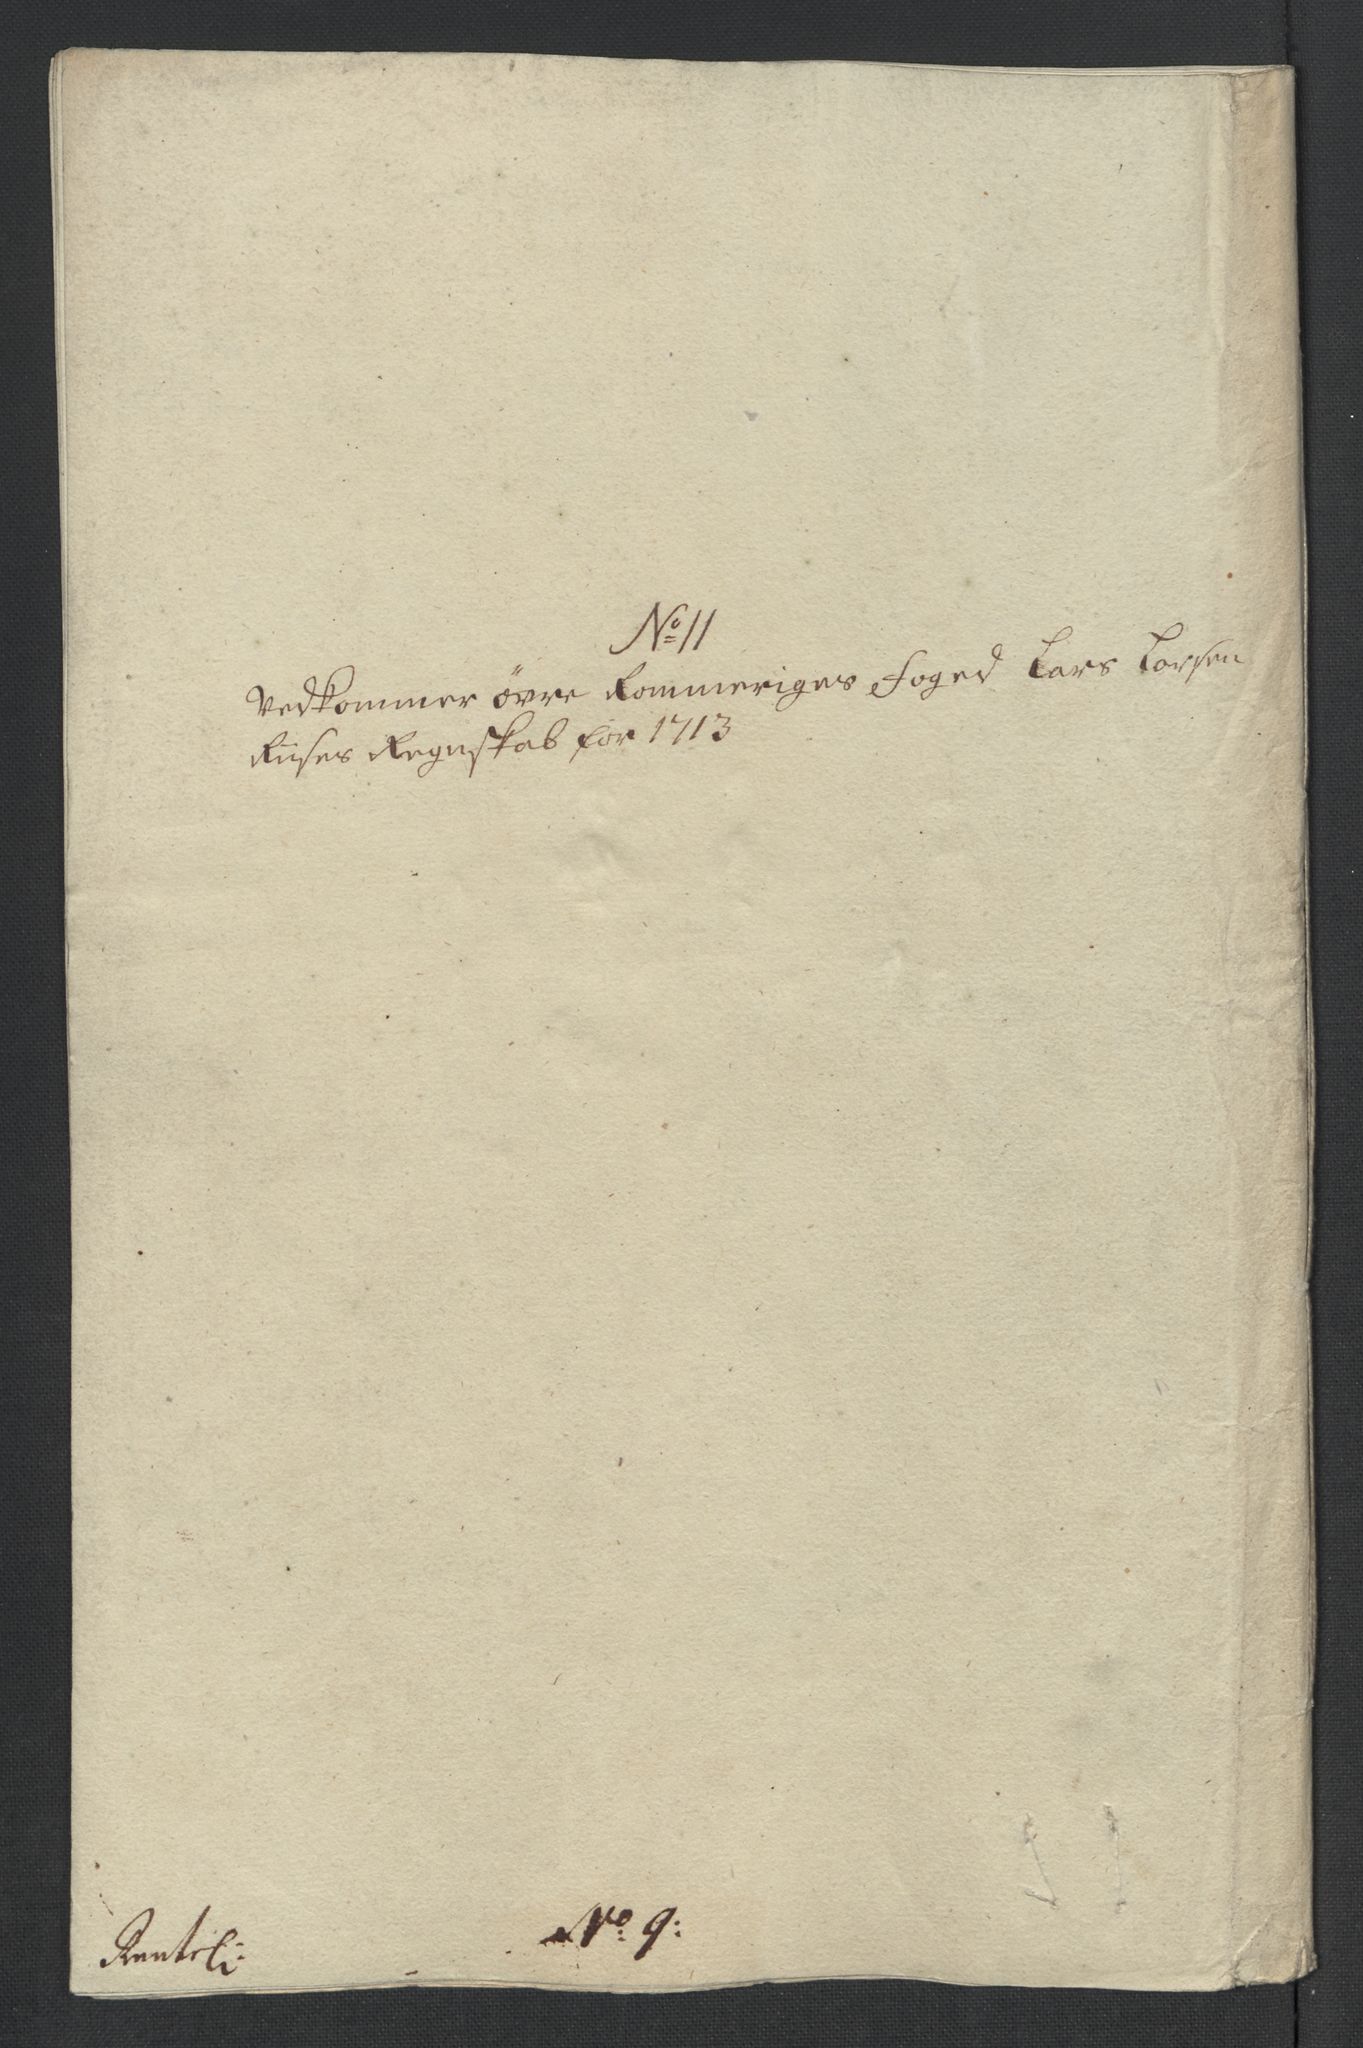 No 11
Vedkommer övre Rommeriges Foged Lars Larsen
Riises Regnskab for 1713
No: 9: